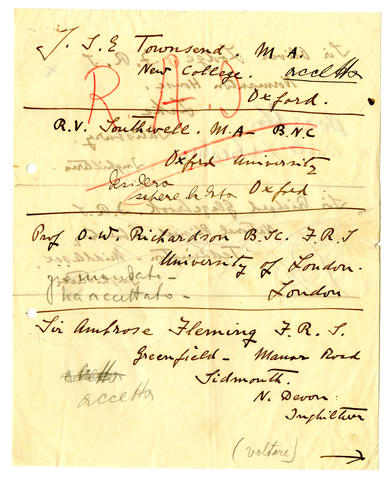 J. S. E Townsend. M. A.
New College. accetta
Oxford.
R.V. Southwell. M.A- B.N.C
Oxford University
Desidera
sapere la data Oxford
Prof O.W. Richardson B.Sc. F.R.S
University of London.
già mandato-
ha accettato- London
Sir Ambrose Fleming F.R.S.
Greenfield- Manor Road
accetta Sidmouth.
accetta N. Devon.
Inghilterra
(voltare)